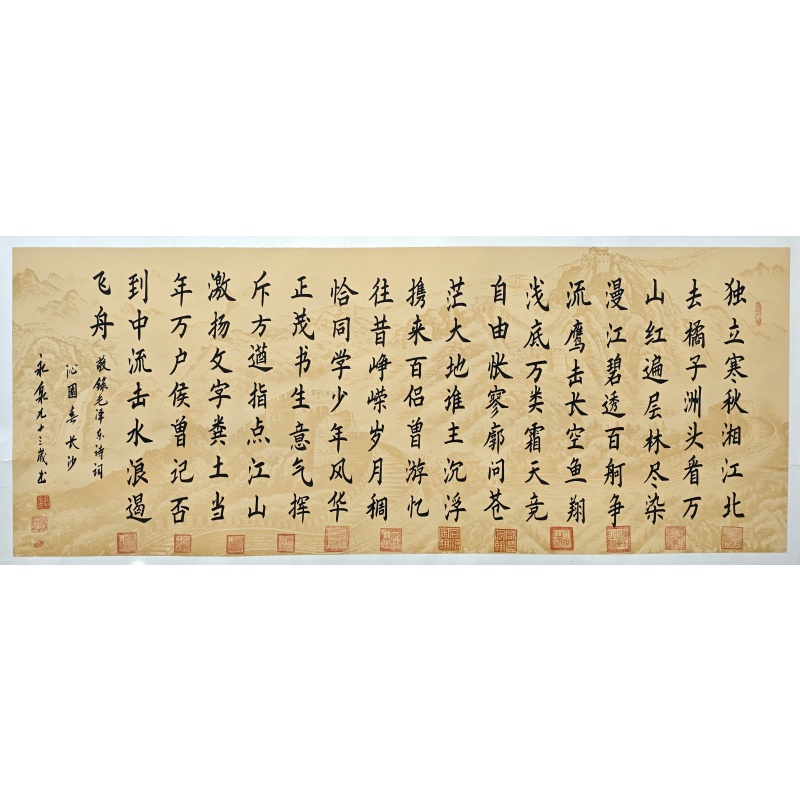 独立寒秋湘江北
去橘子洲头看万
山红遍层林尽染
漫江碧透百舸争
流鹰击长空鱼翔
浅底万类霜天竞
自由怅寥廓问苍
茫大地谁主沉浮
携来百侣曾游忆
往昔峥嵘岁月稠
恰同学少年风华
正茂书生意气挥
斥方遒指点江山
激扬文字粪土当
年万户侯曾记否
到中流击水浪遏
飞舟
敬錄毛泽东诗词
沁園春长沙
永泉九十三岁书